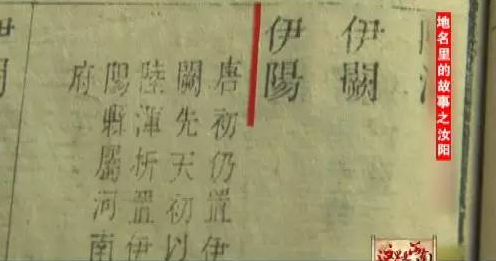 地名里的故事之汝阳
伊闕
伊陽
唐初仍置伊
闕先天初以
陸渾析置伊
陽縣屬河南
府